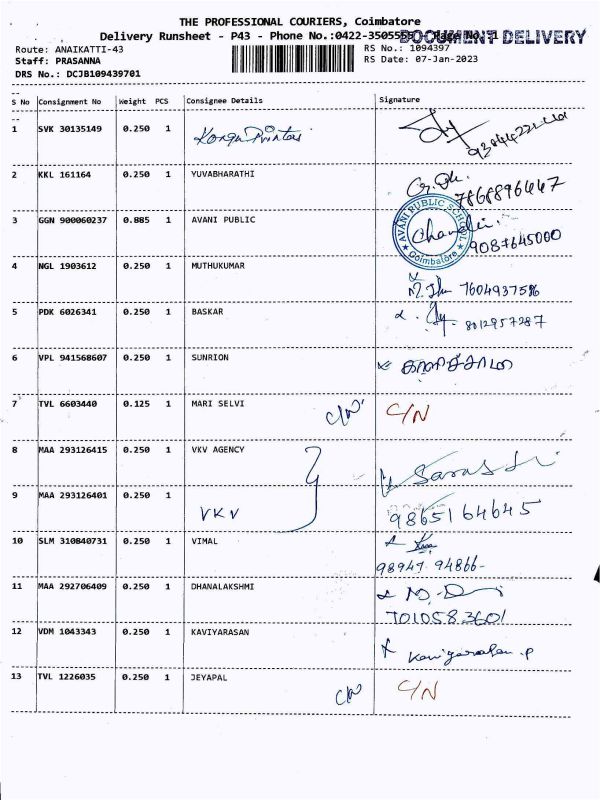 THE PROFESSIONAL COURIERS, Coimbatore
Delivery Runsheet - P43 - Phone No.:0422-3505555, Page No. 1
DOCUMENT DELIVERY
Route: ANAIKATTI-43
RS No.: 1094397
Staff: PRASANNA
RS Date: 07-Jan-2023
DRS No.: DCJB109439701
S No Consignment No Weight PCS Consignee Details Signature
1 SVK 30135149 0.250 1 Kongu Printers
2 KKL 161164 0.250 1 YUVABHARATHI
7868896447
3 GGN 900060237 0.885 1 AVANI PUBLIC
AVANI PUBLIC SCHOOL
Coimbatore
9087645000
4 NGL 1903612 0.250 1 MUTHUKUMAR
7604937586
5 PDK 6026341 0.250 1 BASKAR
8012957287
6 VPL 941568607 0.250 1 SUNRION
7 TVL 6603440 0.125 1 MARI SELVI C/N C/N
8 MAA 293126415 0.250 1 VKV AGENCY
9 MAA 293126401 0.250 1 VKV
9865164645
10 SLM 310840731 0.250 1 VIMAL
98947 94866-
11 MAA 292706409 0.250 1 DHANALAKSHMI
7010583601
12 VDM 1043343 0.250 1 KAVIYARASAN Kaviyarasan.P
13 TVL 1226035 0.250 1 JEYAPAL C/N C/N